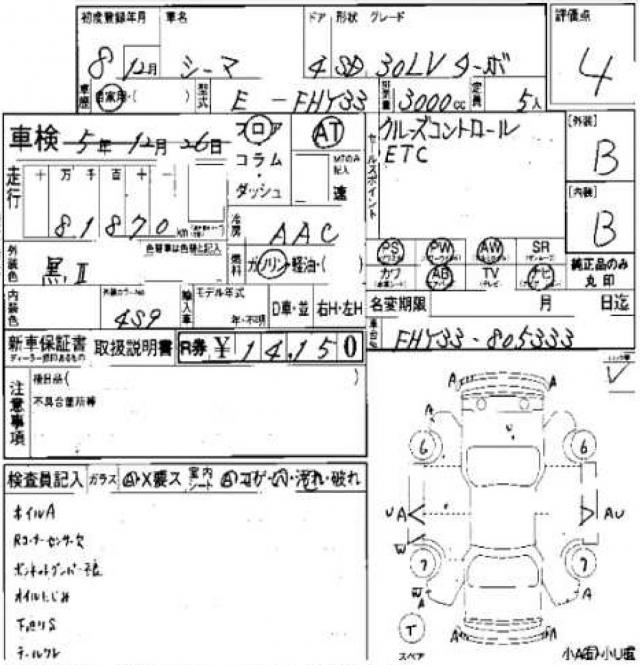 初度登録年月 車名 ドア 形状 グレード 評価点
8 12月 シーマ 4 SD 30LV ターボ 4
車歴 自家用・( ) 型式 E-FHY33 排気量 3000cc 定員 5人
車検 5年12月26日 フロア・コラム・ダッシュ AT MTのみ記入 速
セールスポイント クルーズコントロール
ETC
[外装] B
[内装] B
走行 十 万 千 百 十 一
81870 km
冷房 AAC
外装色 黒II 色替車は色替と記入
燃料 ガソリン・軽油・( )
PS PW AW SR
カワ AB TV ナビ
純正品のみ丸印
内装色 外装カラーNo. 4S9 輸入車 モデル年式 年・不明 D車・並 右H・左H
名変期限 月 日迄
車台No. FHY33-805333
新車保証書 取扱説明書 R券 ¥14,150
ディーラー捺印あるもの
注意事項 後日品( )
不具合箇所等
検査員記入 ガラス A・X要ス 室内シート A・コゲ・穴・汚れ・破れ
ホイルA
Rコーナーセンサー欠
オイルにじみ
下廻りS
A A
A
6 6
U
U A A U
W
7 7
W A A
T
スペア
A A
小A面・小U面